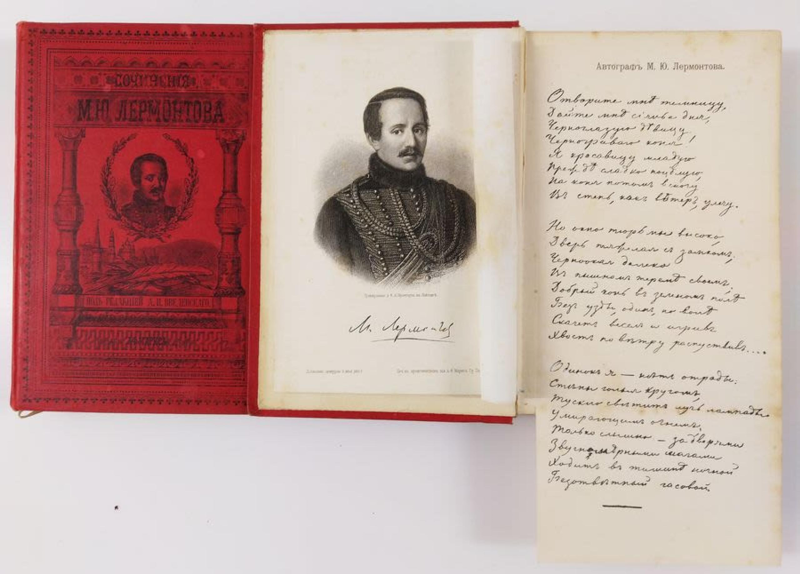 СОЧИНЕНІЯ
М.Ю. ЛЕРМОНТОВА
ПОДЪ РЕДАКЦІЕЙ
М. Лермонтов
Автографъ М. Ю. Лермонтова.
Отворите мнѣ темницу,
Дайте мнѣ сіянье дня,
Черноглазую дѣвицу,
Черногриваго коня
Я красавицу младую
Прежде сладко поцѣлую,
На коня потомъ вскочу
Въ степь, какъ вѣтеръ, улечу.
Но окно тюрьмы высоко,
Дверь тяжелая съ замкомъ;
Черноокая далеко
Въ пышномъ теремѣ своемъ;
Добрый конь въ зеленомъ полѣ
Безъ узды, одинъ, по волѣ
Скачетъ веселъ и игривъ
Хвостъ по вѣтру распустивъ....
Одинокъ я — нѣтъ отрады:
Стѣны голыя кругомъ,
Тускло свѣтитъ лучъ лампады
Умирающимъ огнемъ;
Только слышно — за дверями
Звучномѣрными шагами
Ходитъ въ тишинѣ ночной
Безотвѣтный часовой